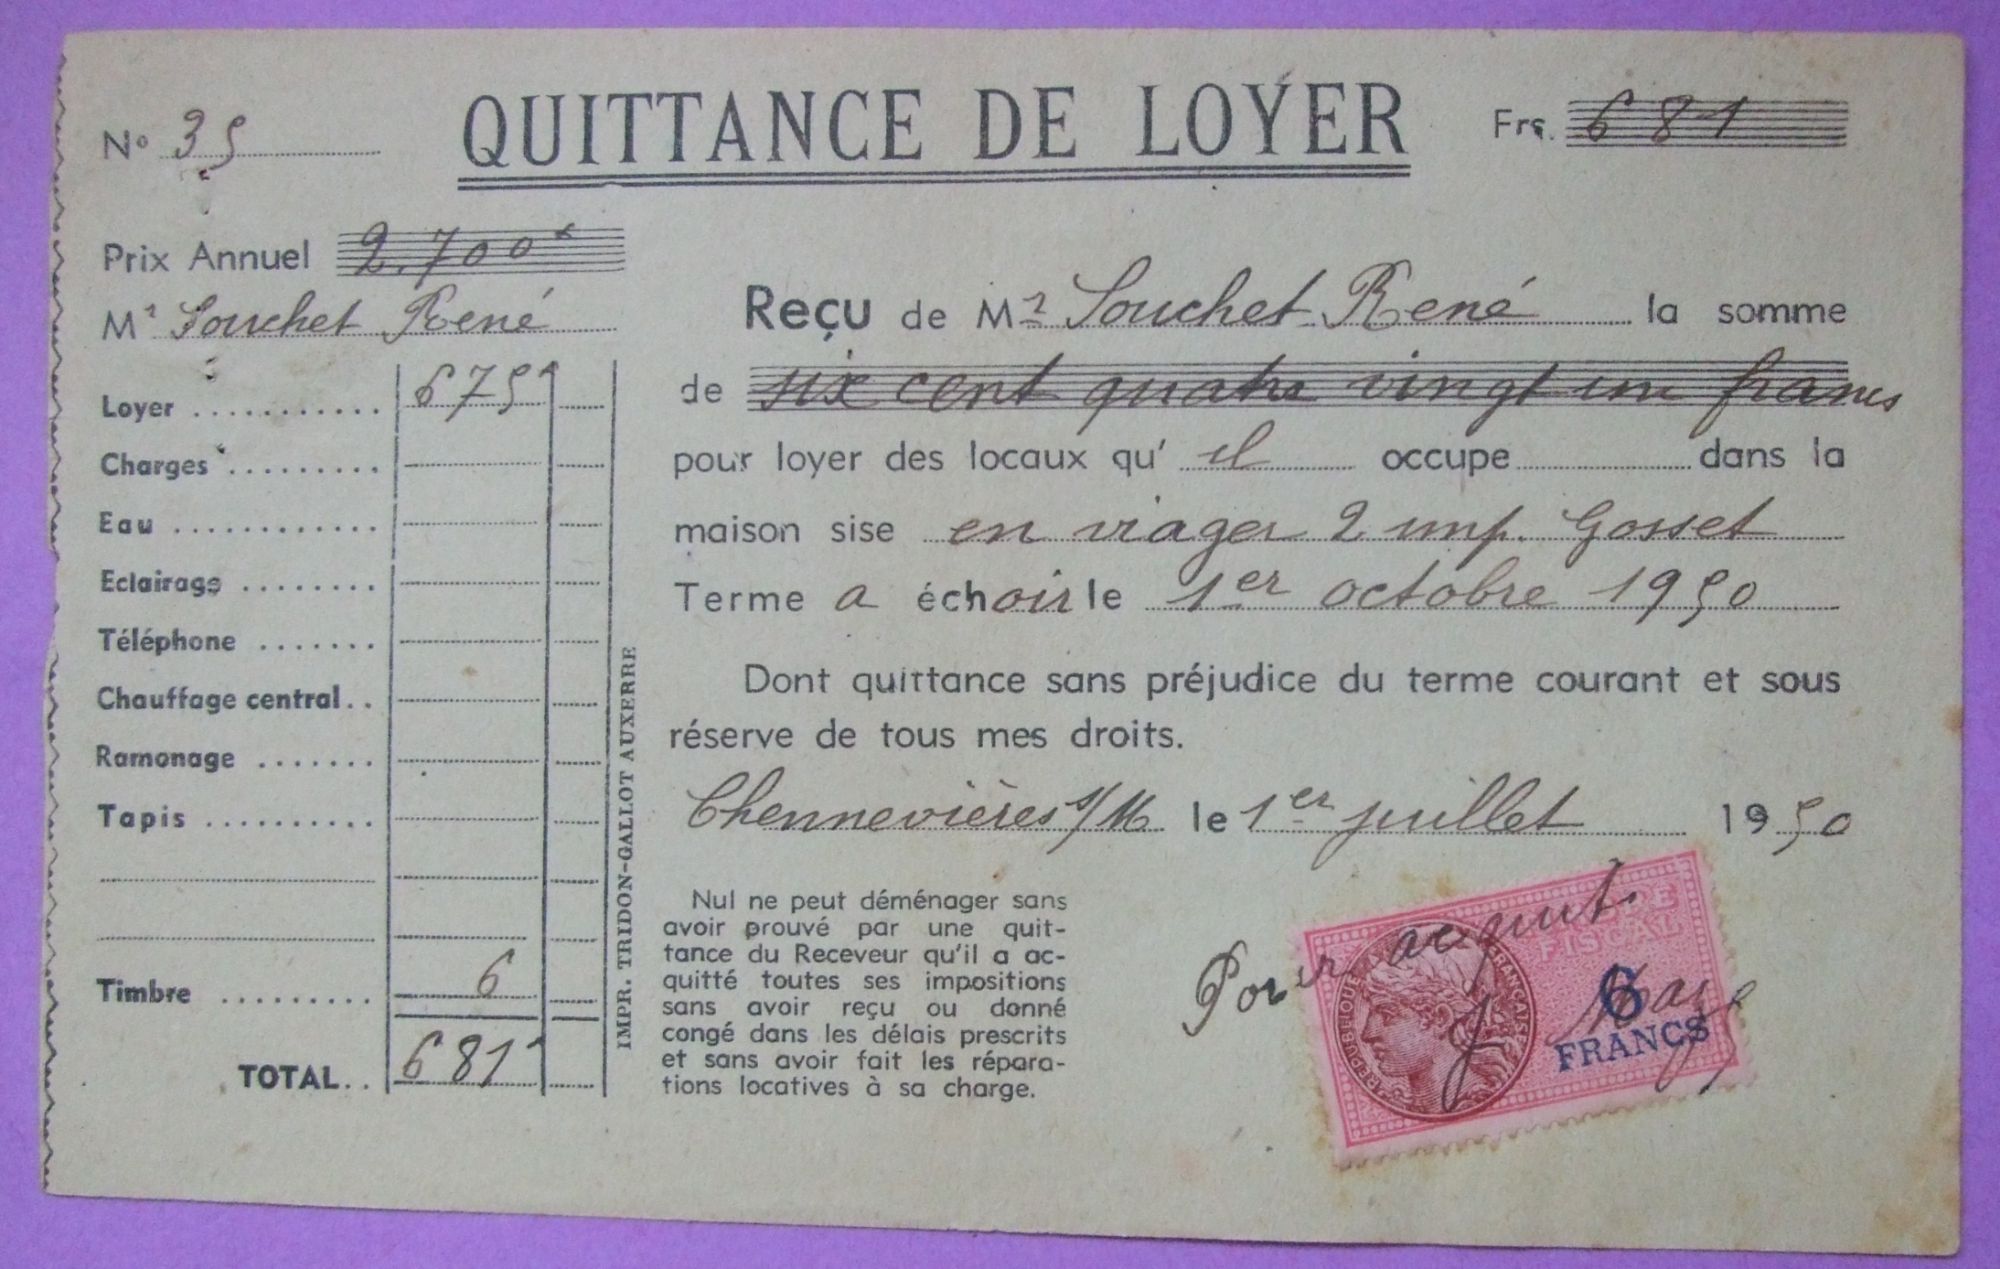 QUITTANCE DE LOYER
N° 35
Frs. 681
Prix Annuel 2.700
Mr Souchet René
Loyer ........... 675
Charges .........
Eau ............
Eclairage ........
Téléphone .......
Chauffage central..
Ramonage .......
Tapis ..........
Timbre ......... 6
TOTAL.. 681
IMPR. TRIDON-GALLOT AUXERRE
Reçu de Mr Souchet René la somme
de six cent quatre vingt un francs
pour loyer des locaux qu' il occupe dans la
maison sise en viager 2 imp. Gosset
Terme a échoir le 1er octobre 1950
Dont quittance sans préjudice du terme courant et sous
réserve de tous mes droits.
Chennevières s/M le 1er juillet 1950
Nul ne peut déménager sans
avoir prouvé par une quit-
tance du Receveur qu'il a ac-
quitté toutes ses impositions
sans avoir reçu ou donné
congé dans les délais prescrits
et sans avoir fait les répara-
tions locatives à sa charge.
Pour acquit
FISCAL
6
FRANCS
REPUBLIQUE FRANÇAISE